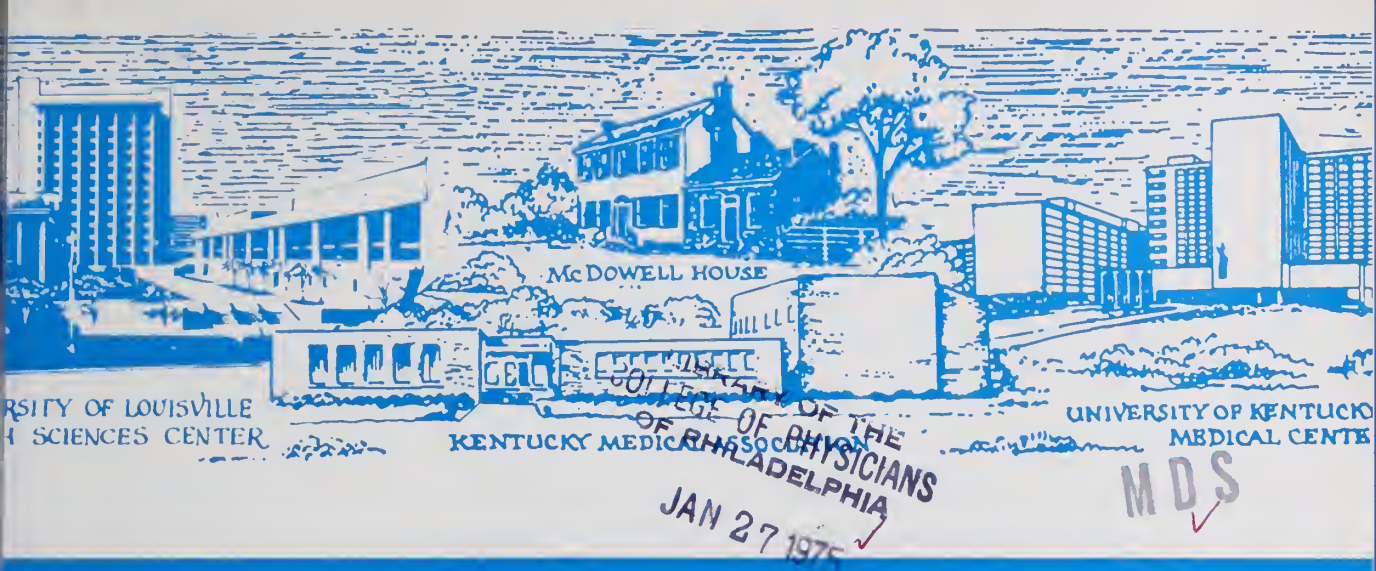 McDOWELL HOUSE
RSITY OF LOUISVILLE
H SCIENCES CENTER
KENTUCKY MEDICAL ASSOCIATION
UNIVERSITY OF KENTUCKY
MEDICAL CENTE
LIBRARY OF THE
COLLEGE OF PHYSICIANS
OF PHILADELPHIA
JAN 27 1975
MDS